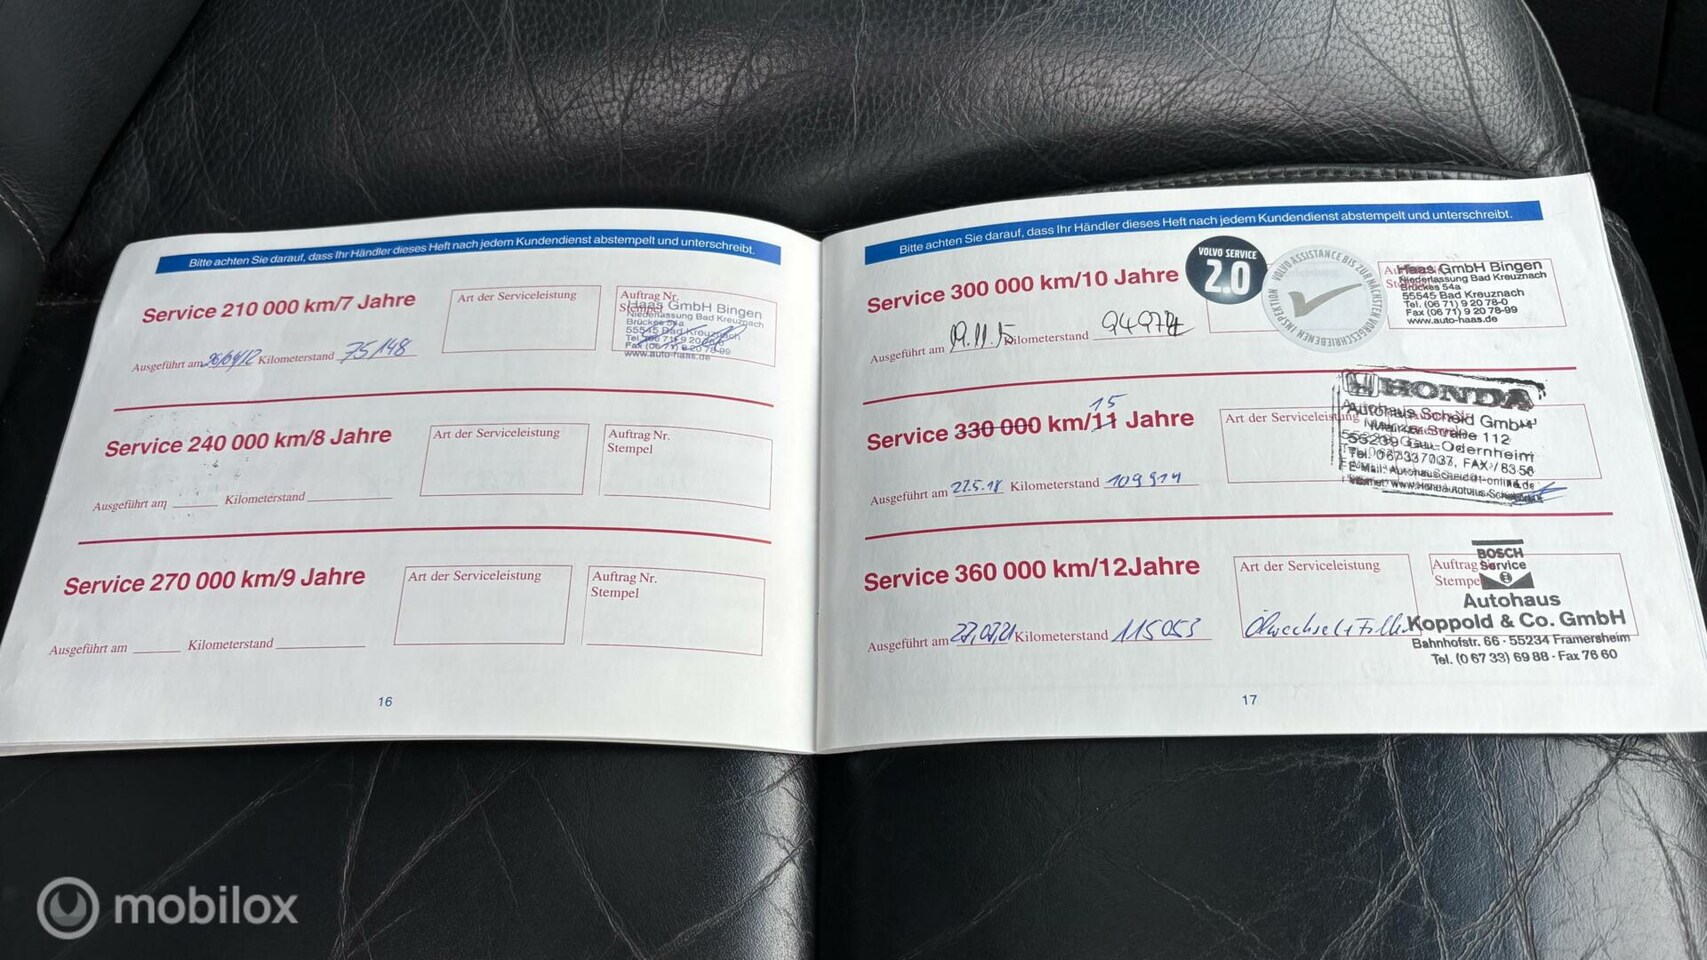 Bitte achten Sie darauf, dass Ihr Händler dieses Heft nach jedem Kundendienst abstempelt und unterschreibt.
Service 210 000 km/7 Jahre
Art der Serviceleistung
Auftrag Nr.
Stempel
Haas GmbH Bingen
Niederlassung Bad Kreuznach
Brückes 54a
55545 Bad Kreuznach
Tel. (06 71) 9 20 78-0
Fax (06 71) 9 20 78-99
www.auto-haas.de
Ausgeführt am 26/04/12 Kilometerstand 75/148
Service 240 000 km/8 Jahre
Art der Serviceleistung
Auftrag Nr.
Stempel
Ausgeführt am Kilometerstand
Service 270 000 km/9 Jahre
Art der Serviceleistung
Auftrag Nr.
Stempel
Ausgeführt am Kilometerstand
16
Bitte achten Sie darauf, dass Ihr Händler dieses Heft nach jedem Kundendienst abstempelt und unterschreibt.
Service 300 000 km/10 Jahre
VOLVO SERVICE
2.0
VOLVO ASSISTANCE BIS ZUR NÄCHSTEN VORGESCHRIEBENEN INSPEKTION
Haas GmbH Bingen
Niederlassung Bad Kreuznach
Brückes 54a
55545 Bad Kreuznach
Tel. (06 71) 9 20 78-0
Fax (06 71) 9 20 78-99
www.auto-haas.de
Ausgeführt am Kilometerstand
15
Service 330 000 km/11 Jahre
Art der Serviceleistung
HONDA
Autohaus Scheid GmbH
Mainzer Straße 112
55239 Gau-Odernheim
Tel. 06733/7037, FAX / 8356
Ausgeführt am 22.5.18 Kilometerstand 109914
Service 360 000 km/12Jahre
Art der Serviceleistung
Auftrag
Stempel
BOSCH
Service
Autohaus
Koppold & Co. GmbH
Bahnhofstr. 66 · 55234 Framersheim
Tel. (0 67 33) 69 88 · Fax 76 60
Ausgeführt am 27,07,21 Kilometerstand 115053 Ölwechsel + Filter
17
mobilox